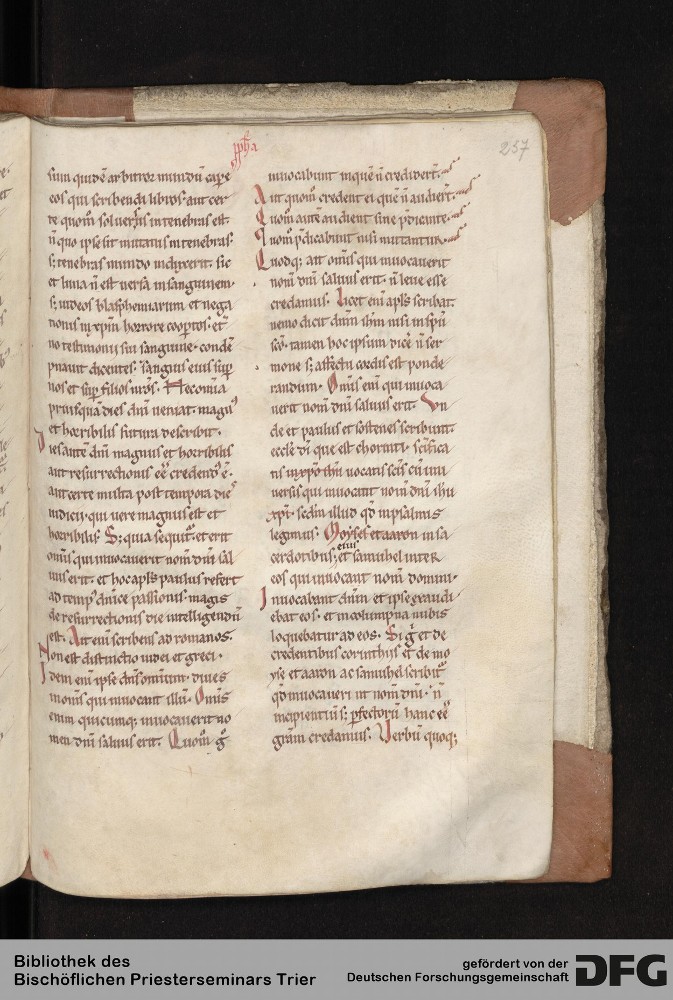 ppħa
257
sum quidē arbitror mundū cape
eos qui scribendi libros· aut cer
te quom̄ sol versus in tenebras est·
n̄ quo ipse sit mutatus in tenebras·
s; tenebras mundo induxerit· sic
et luna n̄ est versa in sanguinem·
s; iudeos blasphemiarum et nega
tionis in xp̄m horrore coop̄tos· et
no testimonii sui sanguine· condē
pnavit dicentes· Sanguis eius sup
nos et sup filios nr̄os· Nec om̄ia
priusquā dies dn̄i veniat· magn᷒
et horribilis futura describit·
Dies autē dn̄i magnus et horribilis
aut resurrectionis eē credend᷒ ē·
aut certe multa post tempora die᷒
iudicii· qui vere magnus est et
horribilis· S; quia sequit᷑· et erit
om̄is qui invocaverit nom̄ dn̄i sal
vus erit· et hoc apl̄s paulus refert
ad temp᷒ dn̄ice passionis· magis
de resurrectionis die intelligendū
est· Ait enī scribens ad romanos·
Non est distinctio iudei et greci·
Idem enī ipse dn̄s omnium· dives
in om̄is qui invocant illū· Om̄is
enim quicumq; invocaverit no
men dn̄i salvus erit· Quom̄ g̊
invocabunt in quē n̄ credidert̄·
Aut quom̄ credent ei quē n̄ audiert̄·
Quom̄ autē audient sine p̄dicante·
Quom̄ p̄dicabunt nisi mittantur·
Quodq; ait om̄is qui invocaverit
nom̄ dn̄i salvus erit· n̄ leve esse
credamus· Licet enī apl̄s scribat·
nemo dicit dn̄m ihm̄ nisi in spū
sc̄o· tamen hoc ipsum dicē n̄ ser
mone s; affectu cordis est ponde
randum· Om̄is enī qui invoca
verit nom̄ dn̄i salvus erit· Un
de et paulus et sostenes scribunt·
eccl̄e dī que est chorinti· sc̄ificā
tis in xp̄o ihū vocatis sc̄is cū uni
versis qui invocant nom̄ dn̄i ihū
xp̄i· sc̄dm illud qd̄ in psalmis
legimus· Moyses et aaron in sa
cerdotibus eius· et samuhel inter
eos qui invocant nom̄ domini·
Invocabant dn̄m et ipse exaudi
ebat eos· et in columpna nubis
loquebatur ad eos· Si g̊ et de
credentibus corinthiis et de mo
yse et aaron ac samuhel scribit᷑
qd̄ invocaverint nom̄ dn̄i· n̄
incipientiū s; p̄fectorū hanc eē
grām credamus· Verbū quoq;
Bibliothek des
Bischöflichen Priesterseminars Trier
gefördert von der
Deutschen Forschungsgemeinschaft
DFG